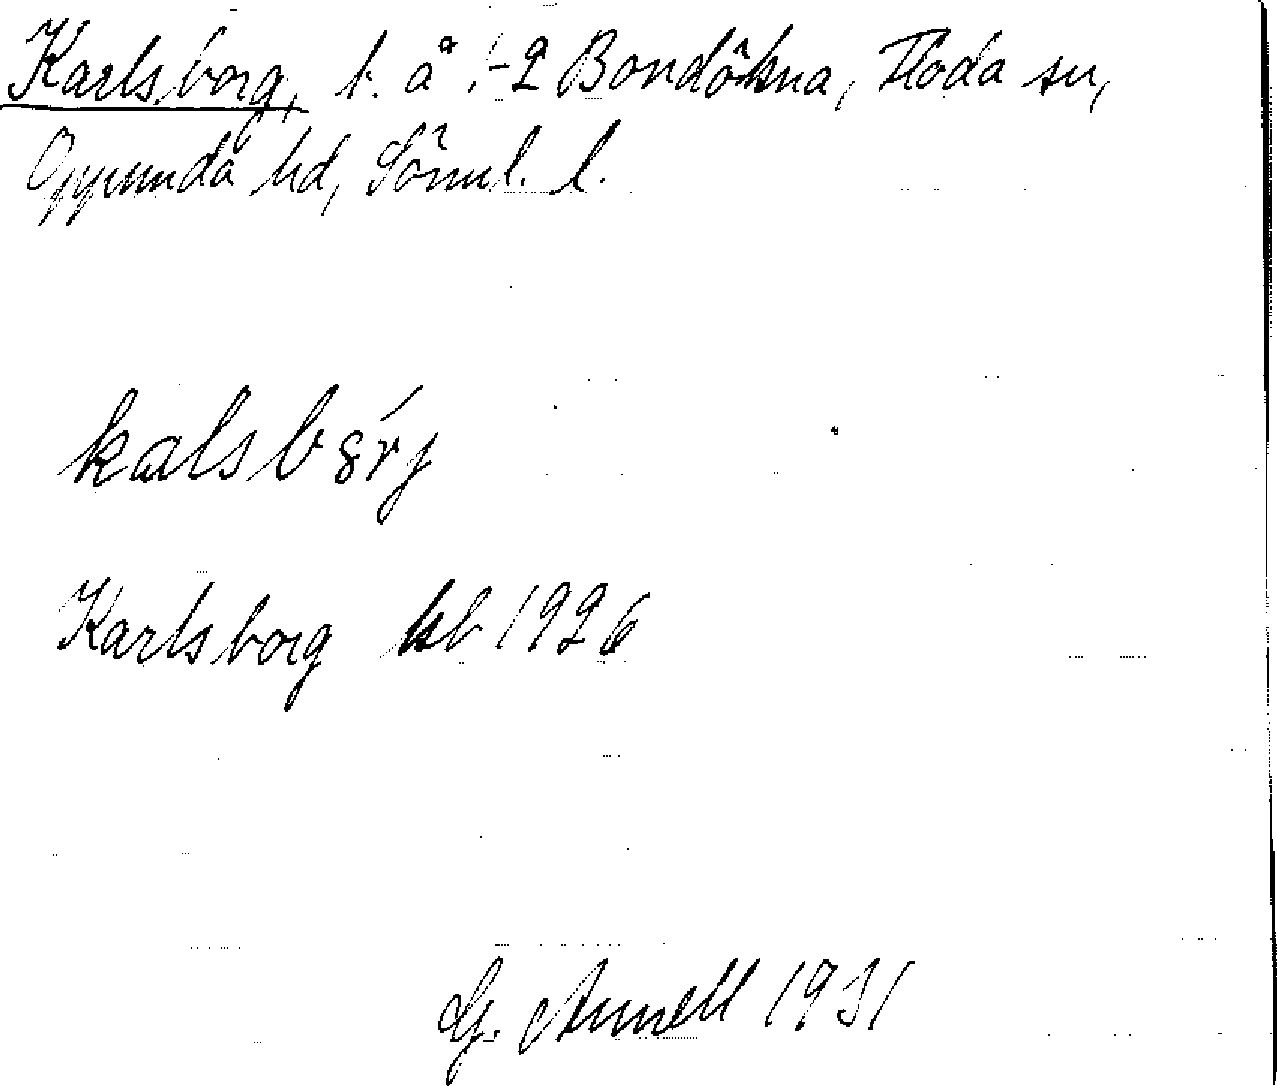 Karlsborg, t. å 1-2 Bondökna, Floda sn,
Oppunda hd, Sörml. l.
kalsbȣ́rj
Karlsborg kb 1926
G. Annell 1931